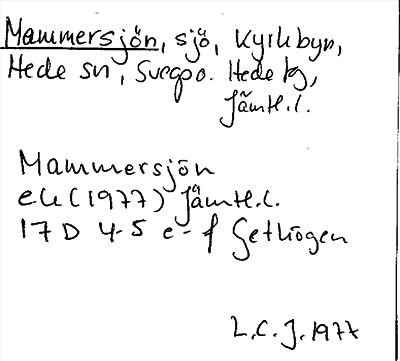 Mammersjön, sjö, Kyrkbyn,
Hede sn, Svegs o. Hede tg,
Jämtl.l.
Mammersjön
ek (1977) Jämtl.l.
17 D 4-5 e-f Gethögen
L.C.J. 1977